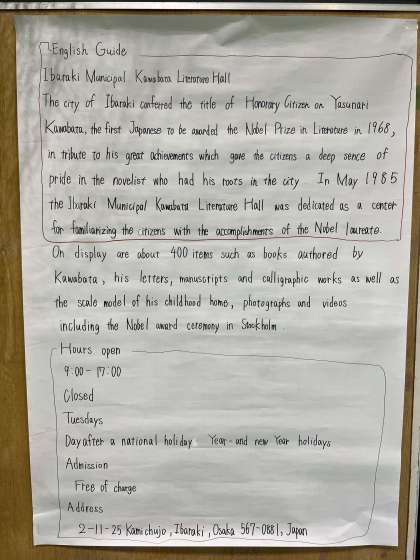 English Guide
Ibaraki Municipal Kawabata Literature Hall
The city of Ibaraki conferred the title of Honorary Citizen on Yasunari
Kawabata, the first Japanese to be awarded the Nobel Prize in Literature in 1968,
in tribute to his great achievements which gave the citizens a deep sence of
pride in the novelist who had his roots in the city. In May 1985
the Ibaraki Municipal Kawabata Literature Hall was dedicated as a center
for familiarizing the citizens with the accomplishments of the Nobel laureate.
On display are about 400 items such as books authored by
Kawabata, his letters, manuscripts and calligraphic works as well as
the scale model of his childhood home, photographs and videos
including the Nobel award ceremony in Stockholm.
Hours open
9:00 - 17:00
Closed
Tuesdays
Day after a national holiday Year-and new Year holidays
Admission
Free of charge
Address
2-11-25 Kamichujo, Ibaraki, Osaka 567-0881, Japan